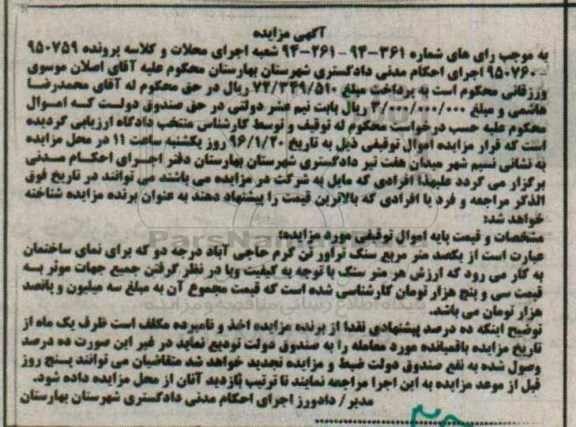 آگهی مزایده
به موجب رای های شماره ۳۶۱-۹۴ - ۲۶۱-۹۴ شعبه اجرای محلات و کلاسه پرونده ۹۵۰۷۵۹
- ۹۵۰۷۶۰ اجرای احکام مدنی دادگستری شهرستان بهارستان محکوم علیه آقای اصلان موسوی
ورزقانی محکوم است به پرداخت مبلغ ۷۲/۳۴۹/۵۱۰ ریال در حق محکوم له آقای محمدرضا
هاشمی و مبلغ ۳/۰۰۰/۰۰۰/۰۰۰ ریال بابت نیم عشر دولتی در حق صندوق دولت که اموال
محکوم علیه حسب درخواست محکوم له توقیف و توسط کارشناس منتخب دادگاه ارزیابی گردیده
است که قرار مزایده اموال توقیفی ذیل به تاریخ ۹۶/۱/۲۰ روز یکشنبه ساعت ۱۱ در محل مزایده
به نشانی نسیم شهر میدان هفت تیر دادگستری شهرستان بهارستان دفتر اجرای احکام مدنی
برگزار می گردد علیهذا افرادی که مایل به شرکت در مزایده می باشند می توانند در تاریخ فوق
الذکر مراجعه و فرد یا افرادی که بالاترین قیمت را پیشنهاد دهند به عنوان برنده مزایده شناخته
خواهد شد:
مشخصات و قیمت پایه اموال توقیفی مورد مزایده:
عبارت است از یکصد متر مربع سنگ تراور تن کرم حاجی آباد درجه دو که برای نمای ساختمان
به کار می رود که ارزش هر متر سنگ با توجه به کیفیت وبا در نظر گرفتن جمیع جهات موثر به
قیمت سی و پنج هزار تومان کارشناسی شده است که قیمت مجموع آن به مبلغ سه میلیون و پانصد
هزار تومان می باشد.
توضیح اینکه ده درصد پیشنهادی نقدا از برنده مزایده اخذ و نامبرده مکلف است ظرف یک ماه از
تاریخ مزایده باقیمانده مورد معامله را به صندوق دولت تودیع نماید در غیر این صورت ده درصد
وصول شده به نفع صندوق دولت ضبط و مزایده تجدید خواهد شد متقاضیان می توانند پنج روز
قبل از موعد مزایده به این اجرا مراجعه نمایند تا ترتیب بازدید آنان از محل مزایده داده شود.
مدیر / دادورز اجرای احکام مدنی دادگستری شهرستان بهارستان